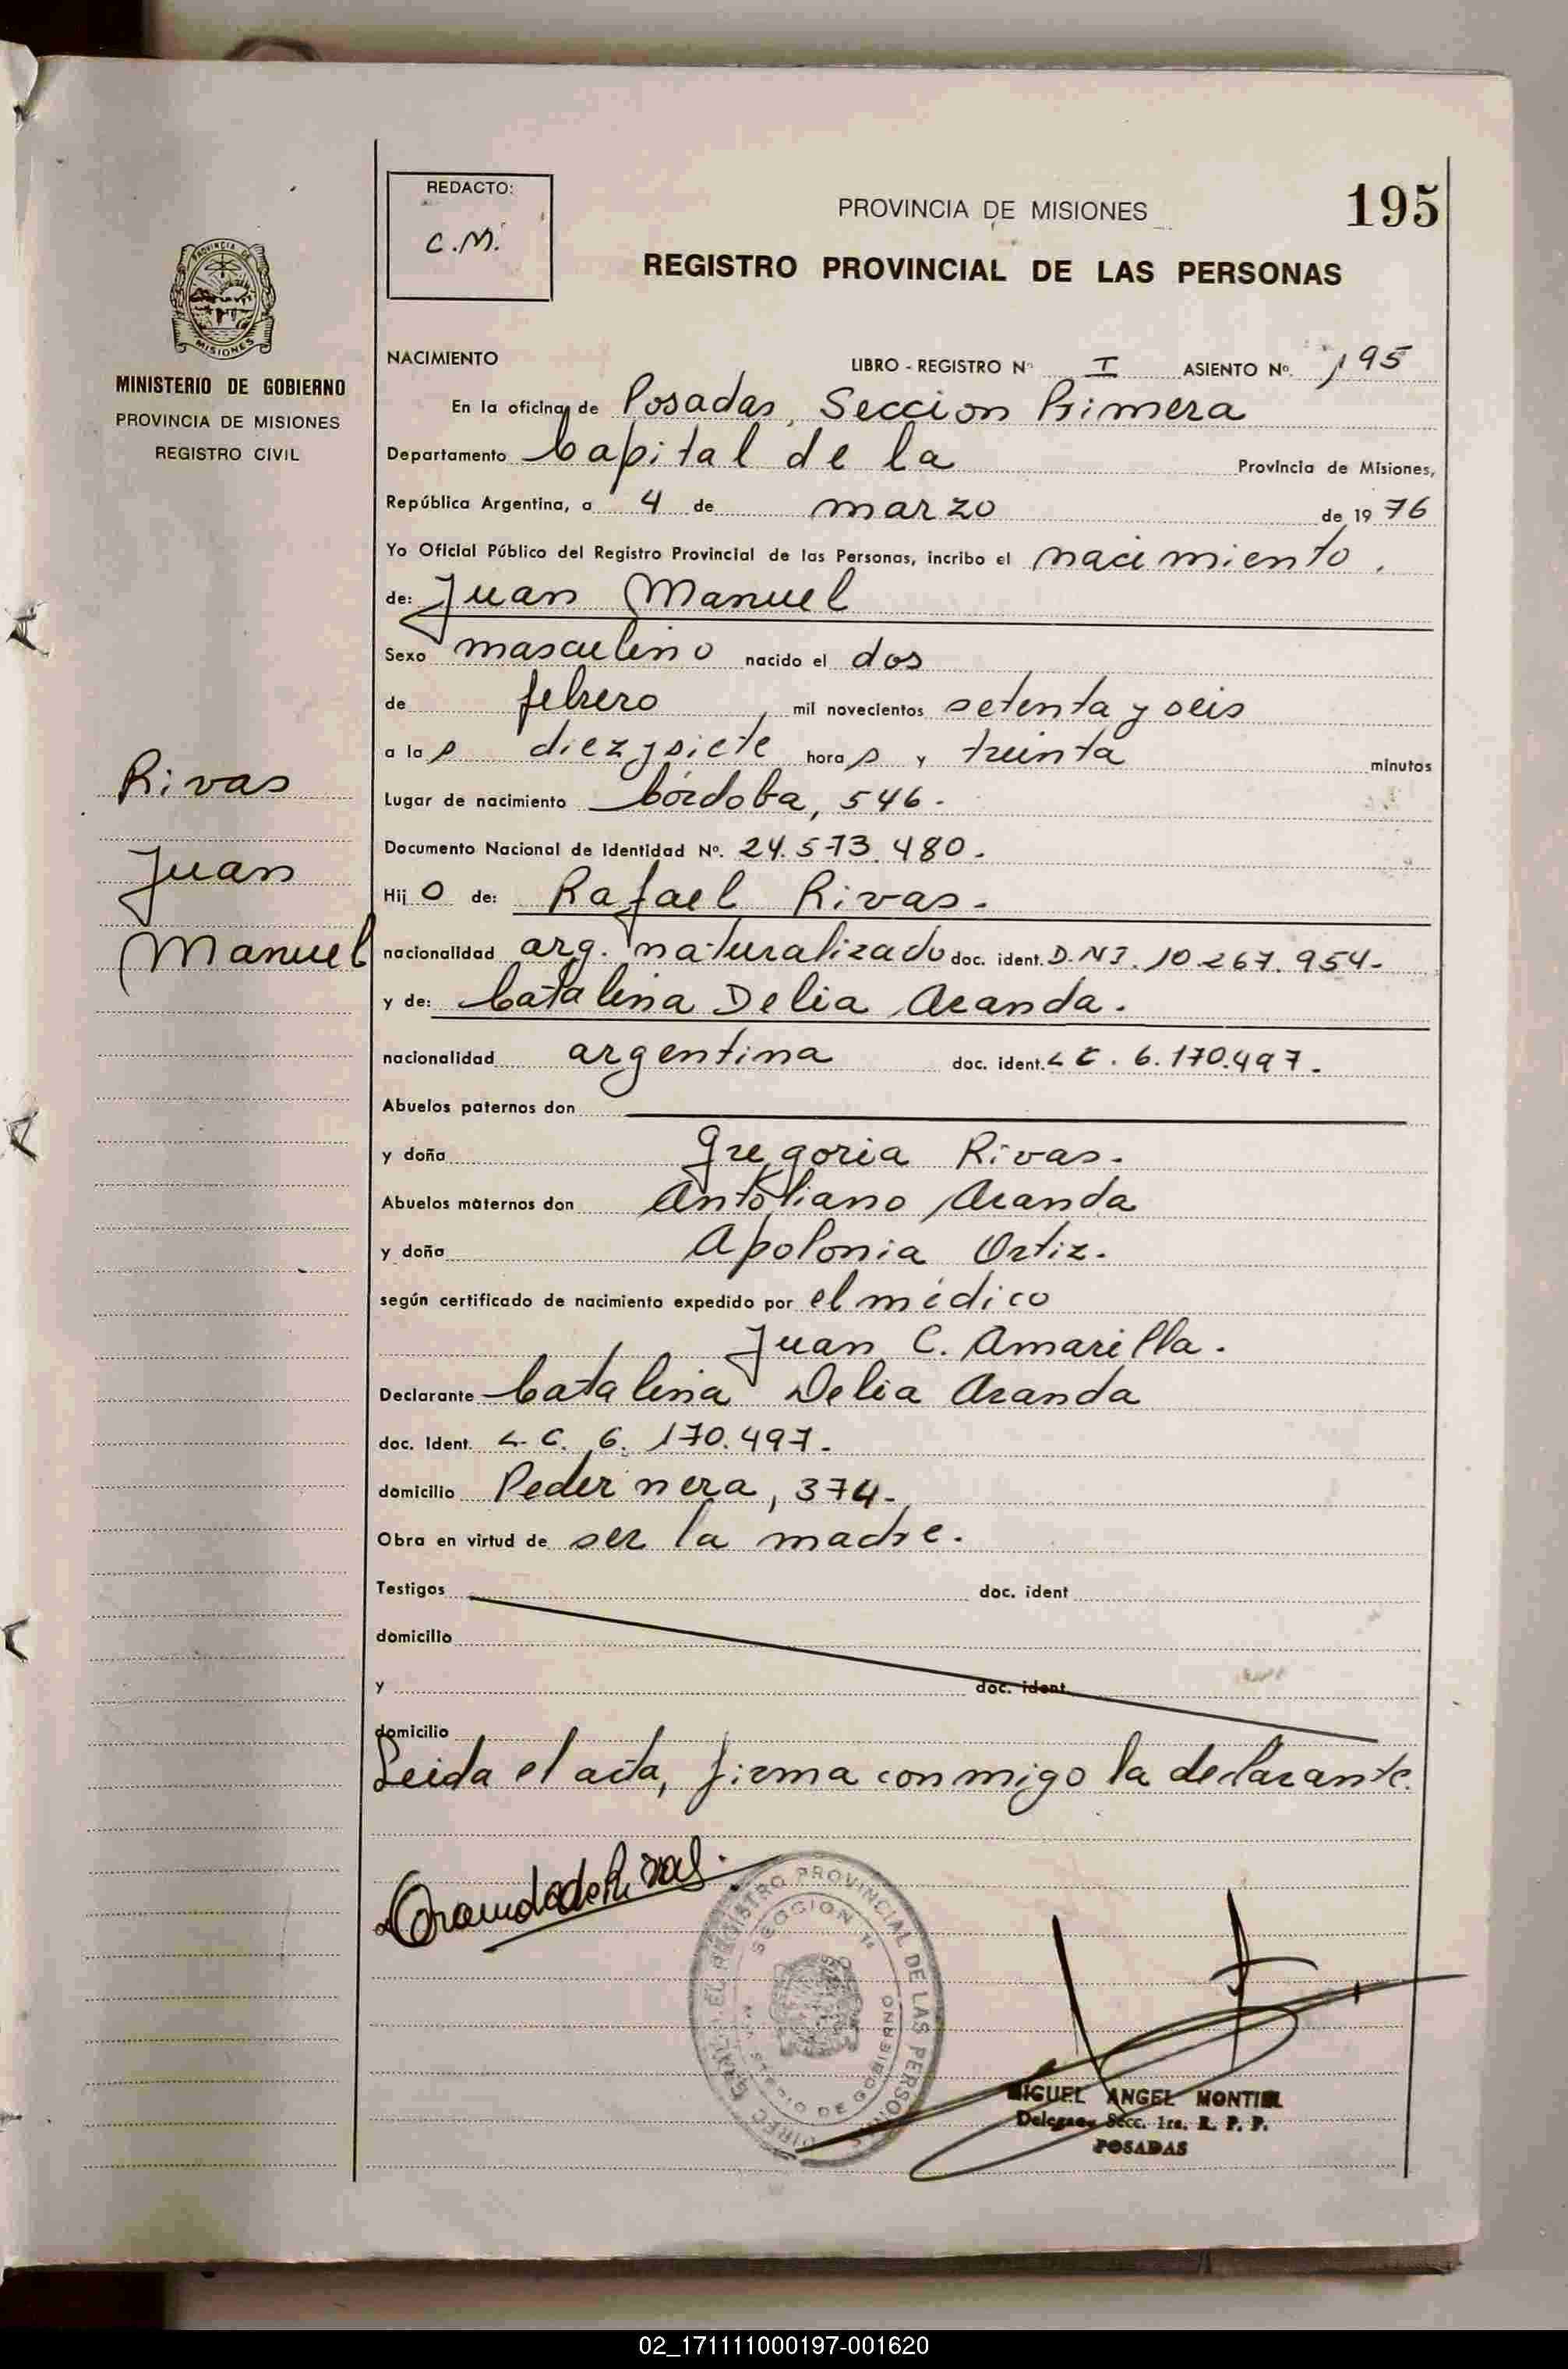 REDACTO:
C.M.
PROVINCIA DE MISIONES
195
REGISTRO PROVINCIAL DE LAS PERSONAS
PROVINCIA DE
MISIONES
MINISTERIO DE GOBIERNO
PROVINCIA DE MISIONES
REGISTRO CIVIL
NACIMIENTO LIBRO - REGISTRO Nº I ASIENTO Nº. 195
En la oficina de Posadas, Seccion Primera
Departamento Capital de la Provincia de Misiones,
República Argentina, a 4 de marzo de 19 76
Yo Oficial Público del Registro Provincial de las Personas, incribo el nacimiento.
de: Juan Manuel
Sexo masculino nacido el dos
de febrero mil novecientos setenta y seis
a las diezysiete horas y treinta minutos
Lugar de nacimiento Córdoba, 546.
Documento Nacional de Identidad Nº. 24.573.480.
Hijo de: Rafael Rivas.
nacionalidad arg. naturalizado doc. ident. D.N.I. 10.267.954-
y de: Catalina Delia Aranda.
nacionalidad argentina doc. ident. L C. 6.170.497.
Abuelos paternos don
y doña Gregoria Rivas.
Abuelos maternos don Antoliano Aranda
y doña Apolonia Ortiz.
según certificado de nacimiento expedido por el médico
Juan C. Amarilla.
Declarante Catalina Delia Aranda
doc. Ident. L. C. 6. 170.497.
domicilio Pedernera, 374-
Obra en virtud de ser la madre.
Testigos doc. ident
domicilio
y doc. ident
domicilio
Leida el acta, firma conmigo la declarante.
Rivas
Juan
Manuel
Aranda de Rivas.
DIREC. GRAL. DEL REGISTRO PROVINCIAL DE LAS PERSONAS
SECCION 1ª
MINISTERIO DE GOBIERNO
MIGUEL ANGEL MONTIEL
Delegado Secc. 1ra. R. P. P.
POSADAS
02_171111000197-001620